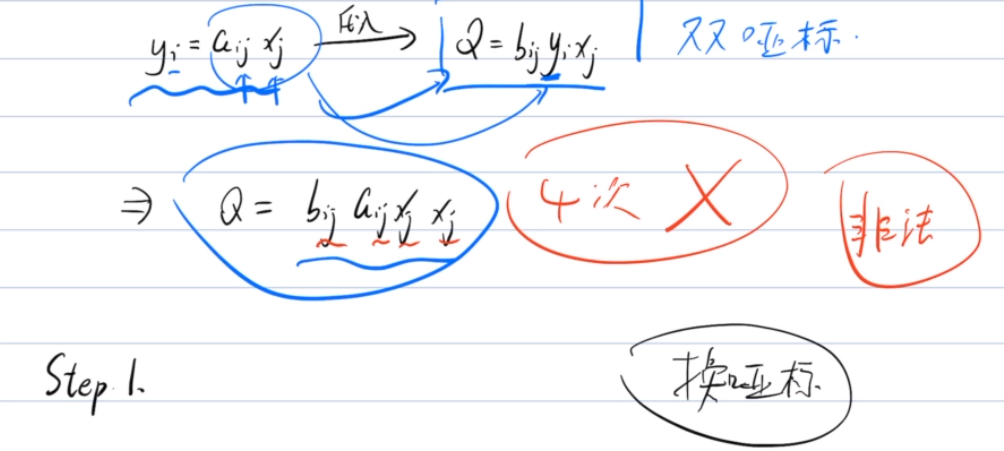 y_i = a_ij x_j 代入 → Q = b_ij y_i x_j 双双哑标.
⇒ Q = b_ij a_ij x_j x_j 4次 X 非法
Step 1. 换哑标